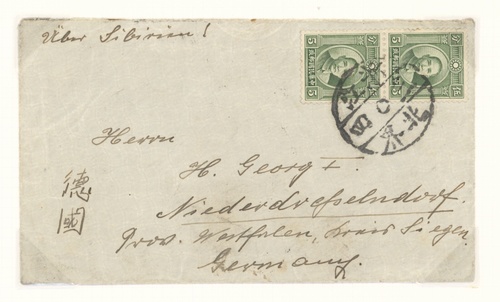 Über Sibirien!
5 5
Herrn
H. Georg I.
Niederdresselndorf.
Prov. Westfalen, Kreis Siegen
Germany.
德國